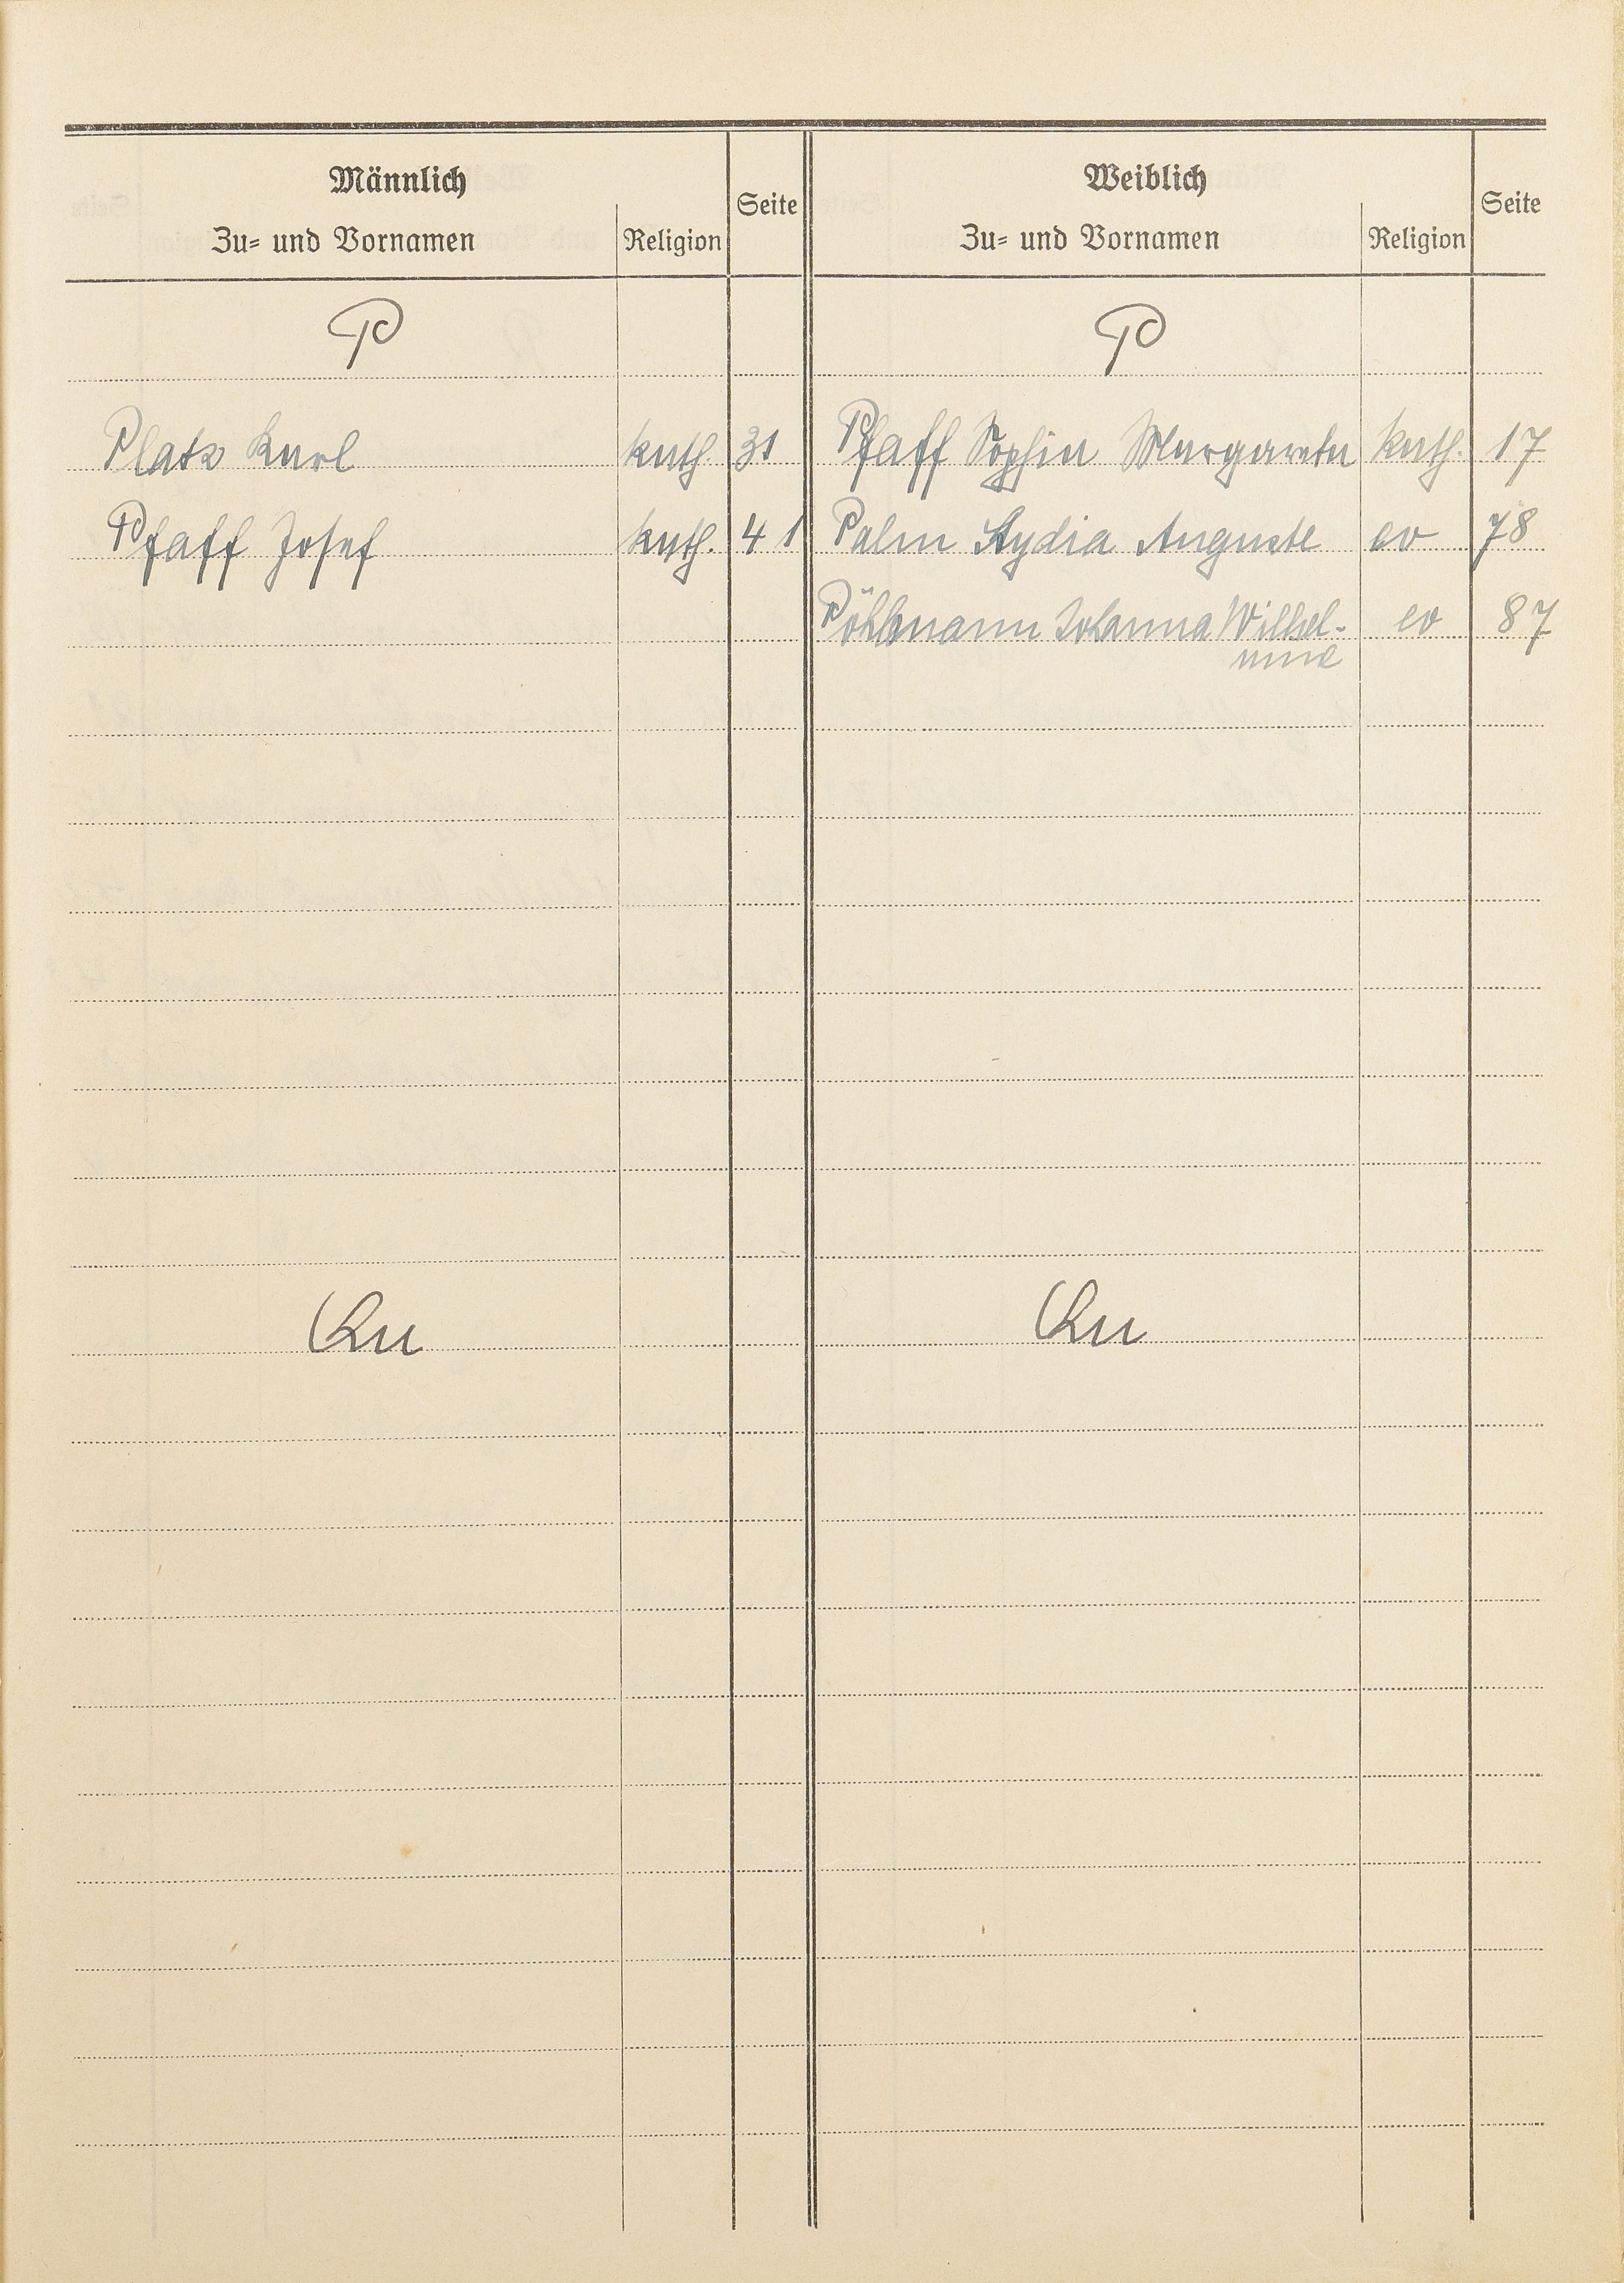 Männlich
Zu- und Vornamen Religion Seite
Weiblich
Zu- und Vornamen Religion Seite
P P
Platz Karl kath. 31 Pfaff Sophia Margareta kath. 17
Pfaff Josef kath. 41 Palm Lydia Auguste ev 78
Pöhlmann Johanna Wilhel- ev 87
mine
Qu Qu